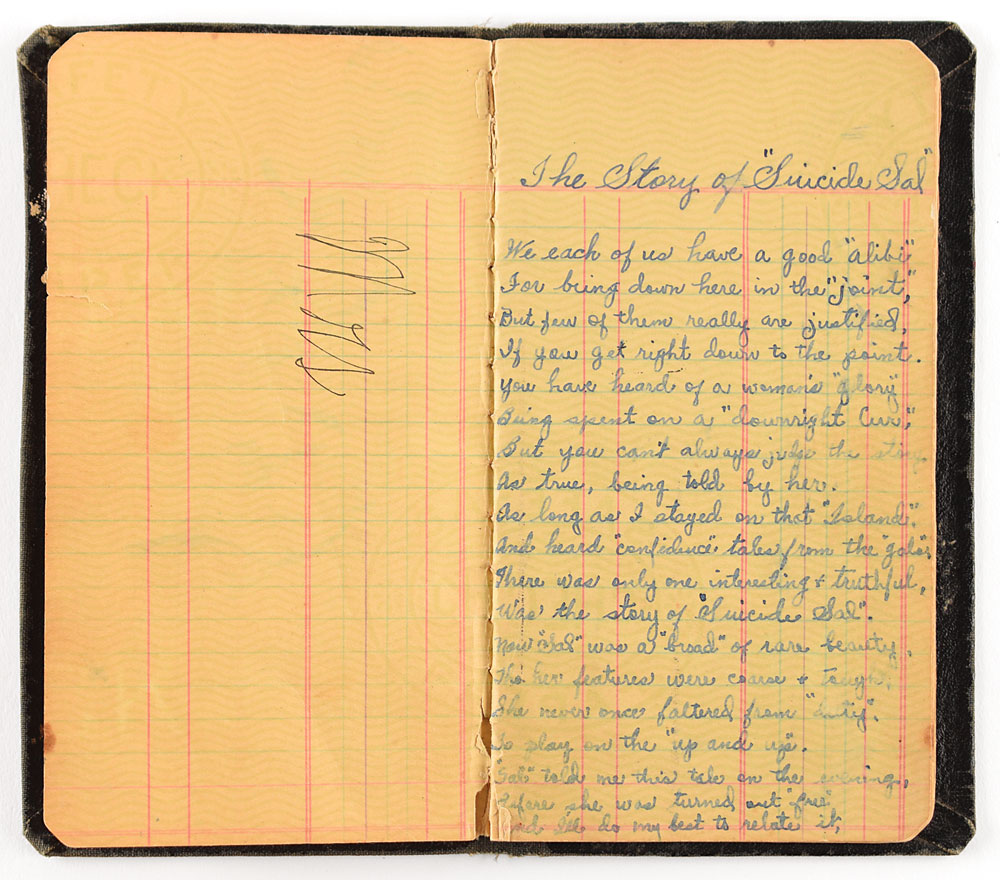 The Story of "Suicide Sal"
We each of us have a good "alibi"
For being down here in the "joint,"
But few of them really are justified,
If you get right down to the point.
You have heard of a woman's "glory"
Being spent on a "downright Cur,"
But you can't always judge the
As true, being told by her.
As long as I stayed on that "Island".
And heard "confidence" tales from the "gals",
There was only one interesting & truthful,
Was the story of "Suicide Sal".
Now "Sal" was a "broad" of rare beauty,
Tho' her features were coarse & tough;
She never once faltered from "duty".
To play on the "up and up".
"Sal" told me this tale on the evening,
Before she was turned out "free"
And I'll do my best to relate it,